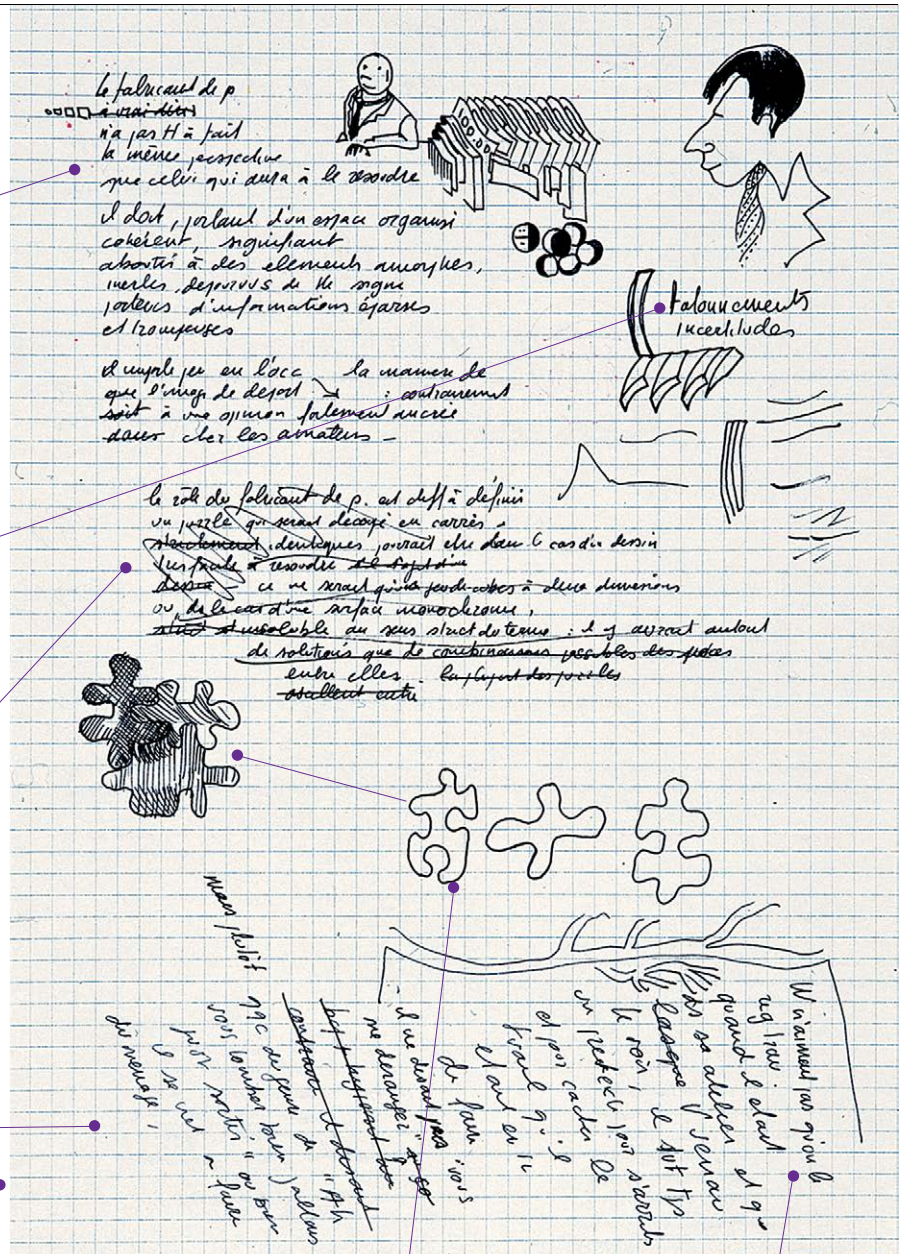 Le fabricant de p
à vrai dire
n'a pas tt à fait
la même perspective
que celui qui aura à le resoudre
il doit, partant d'un espace organisé
cohérent, signifiant
aboutir à des elements amorphes,
inertes, depourvus de tte signe
porteurs d'informations éparses
et trompeuses
tatonnements
incertitudes
la maniere de
que l'image de depart : contrairement
soit à une opinion fortement ancrée
dans chez les amateurs –
le rôle du fabricant de p. est diff à définir
un puzzle qui serait découpé en carrés –
strictement identiques pourrait être dans le cas d'un dessin
facile à resoudre
dessin ce ne serait qu'un jeu de cubes à deux dimensions
ou, ds le cas d'une surface monochrome,
insoluble au sens strict du terme : il y aurait autant
de solutions que de combinaisons possibles des pièces
entre elles. la plupart des puzzles
oscillent entre
mais plutôt
W vraiment pas qu'on le
quand il etait
ds son atelier et q
lorsque V venait
le voir, il
un pretexte pour s'arreter
et pour cacher le
travail qu'il
etait en
- il ne disait pas "vous
me deranger"
contraire il disait
qqc du genre de "Ah
vous tomber bien j'allais
juste sortir" ou bien
il se met à faire
du menage,